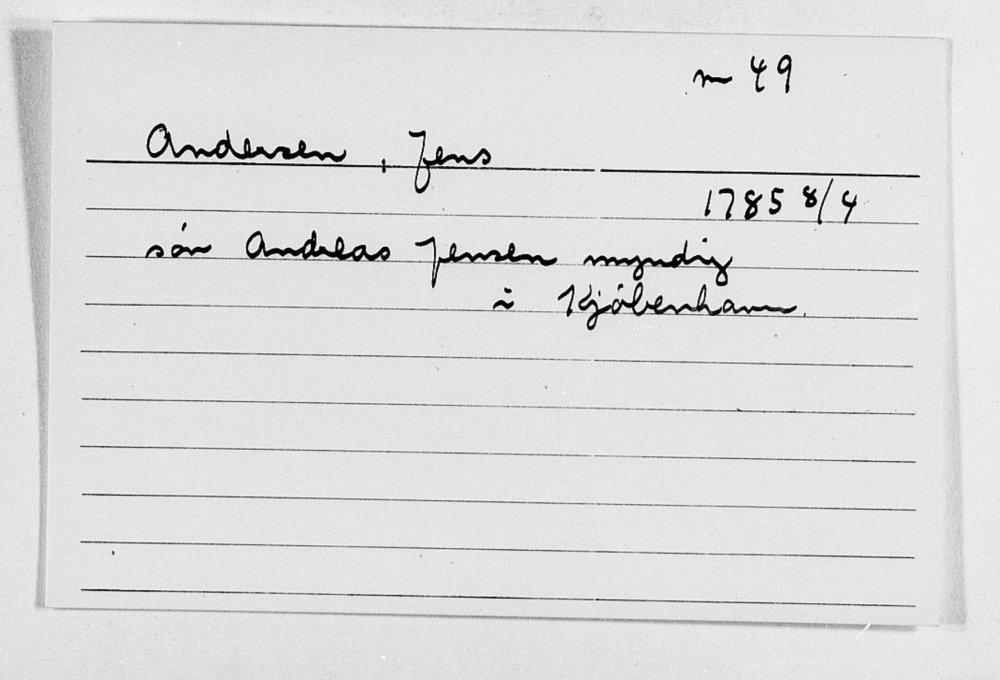 m 49
Andersen, Jens
1785 8/4
søn Andreas Jensen myndig
i Kjøbenhavn.